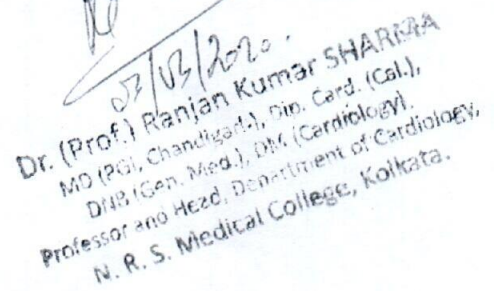 03/03/2020.
Dr. (Prof.) Ranjan Kumar SHARMA
MD (PGI, Chandigad.), Dip. Card. (Cal.),
DNB (Gen. Med.), DM (Cardiology).
Professor and Head, Department of Cardiology,
N. R. S. Medical College, Kolkata.